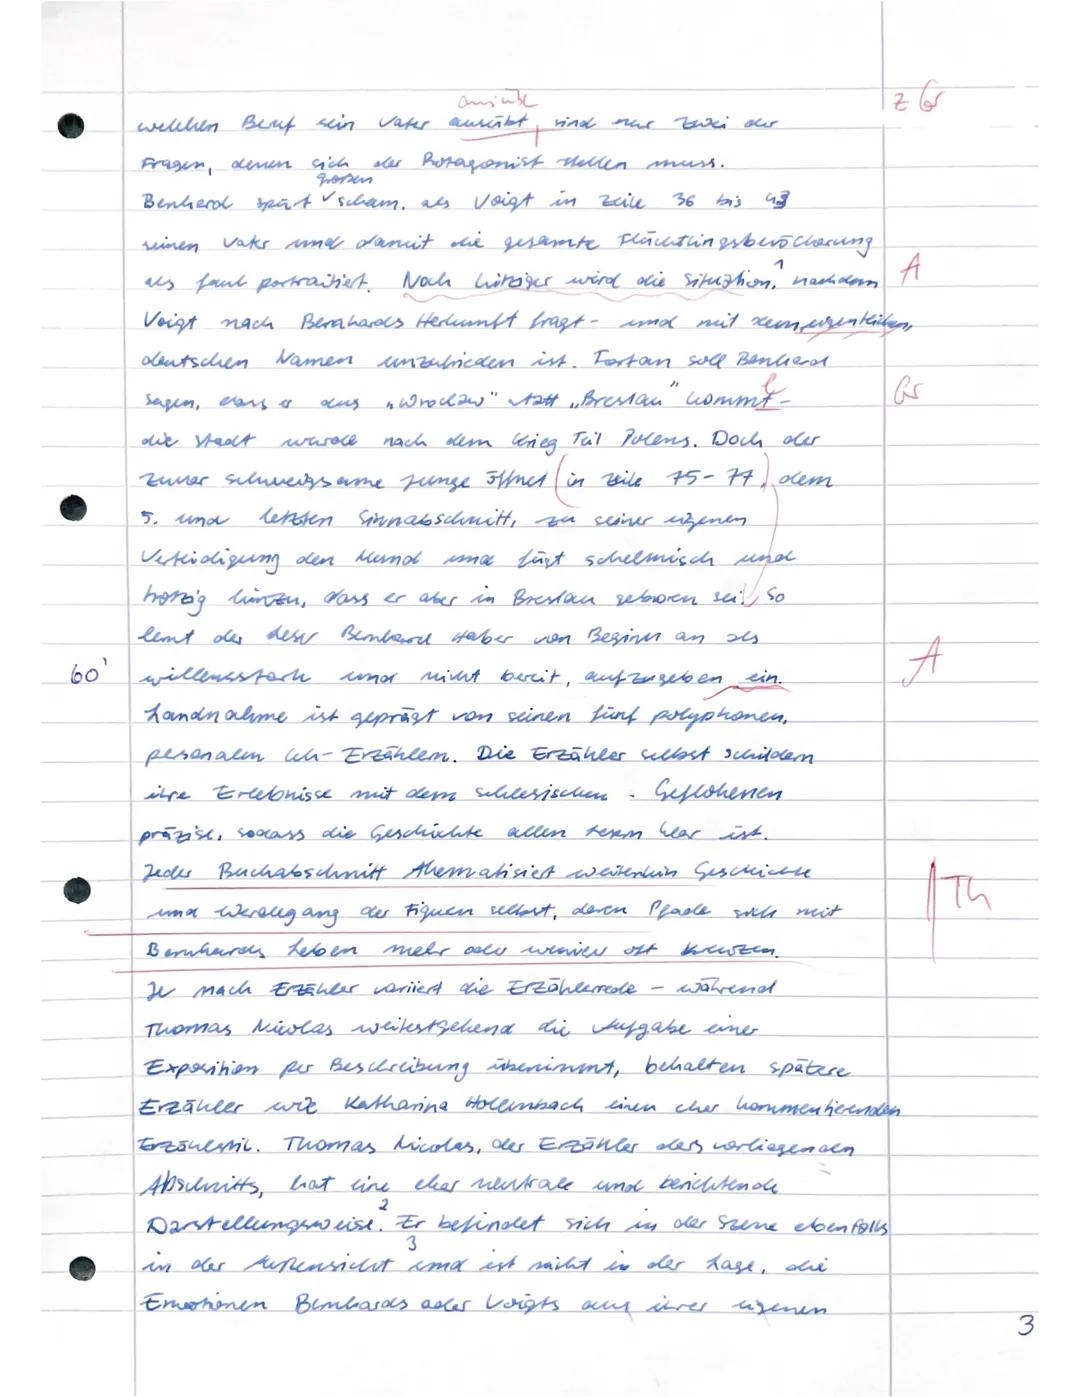 ausübe
z Gr
welchen Beruf sein Vater ausübt, sind nur zwei der
Fragen, denen sich der Protagonist stellen muss.
großen
Benhard spürt Scham, als Voigt in Zeile 36 bis 43
seinen Vater und damit die gesamte Flüchtlingsbevölkerung
als faul portraitiert. Noch hitziger wird die Situation,¹ nachdem A
Voigt nach Bernhards Herkunft fragt - und mit dem eigentlichen,
deutschen Namen unzufrieden ist. Fortan soll Benhard
sagen, dass er aus „Wroclaw" statt „Breslau" kommt - Gr
die Stadt wurde nach dem Krieg Teil Polens. Doch der
zuvor schweigsame Junge öffnet (in Zeile 75-77), dem
5. und letzten Sinnabschnitt, zu seiner eigenen
Verteidigung den Mund und fügt schelmisch und
trotzig hinzu, dass er aber in Breslau geboren sei. So
lernt der Leser Bernhard Haber von Beginn an als
60' willensstark und nicht bereit, aufzugeben ein. A
Landnahme ist geprägt von seinen fünf polyphonen,
personalen Ich-Erzählern. Die Erzähler selbst schildern
ihre Erlebnisse mit dem schlesischen - Geflohenen
präzise, sodass die Geschichte allen Lesern klar ist.
Jeder Buchabschnitt thematisiert weiterhin Geschichte
und Werdegang der Figuren selbst, deren Pfade sich mit Th
Bernhards Leben mehr oder weniger oft kreuzen.
Je nach Erzähler variiert die Erzählerrede - während
Thomas Nicolas weitestgehend die Aufgabe einer
Exposition per Beschreibung übernimmt, behalten spätere
Erzähler wie Katharina Hollenbach einen eher kommentierenden
Erzählstil. Thomas Nicolas, der Erzähler des vorliegenden
Abschnitts, hat eine eher neutrale und berichtende
Darstellungsweise.² Er befindet sich in der Szene ebenfalls
in der Außensicht³ und ist nicht in der Lage, die
Emotionen Bernhards oder Voigts aus ihrer eigenen
3